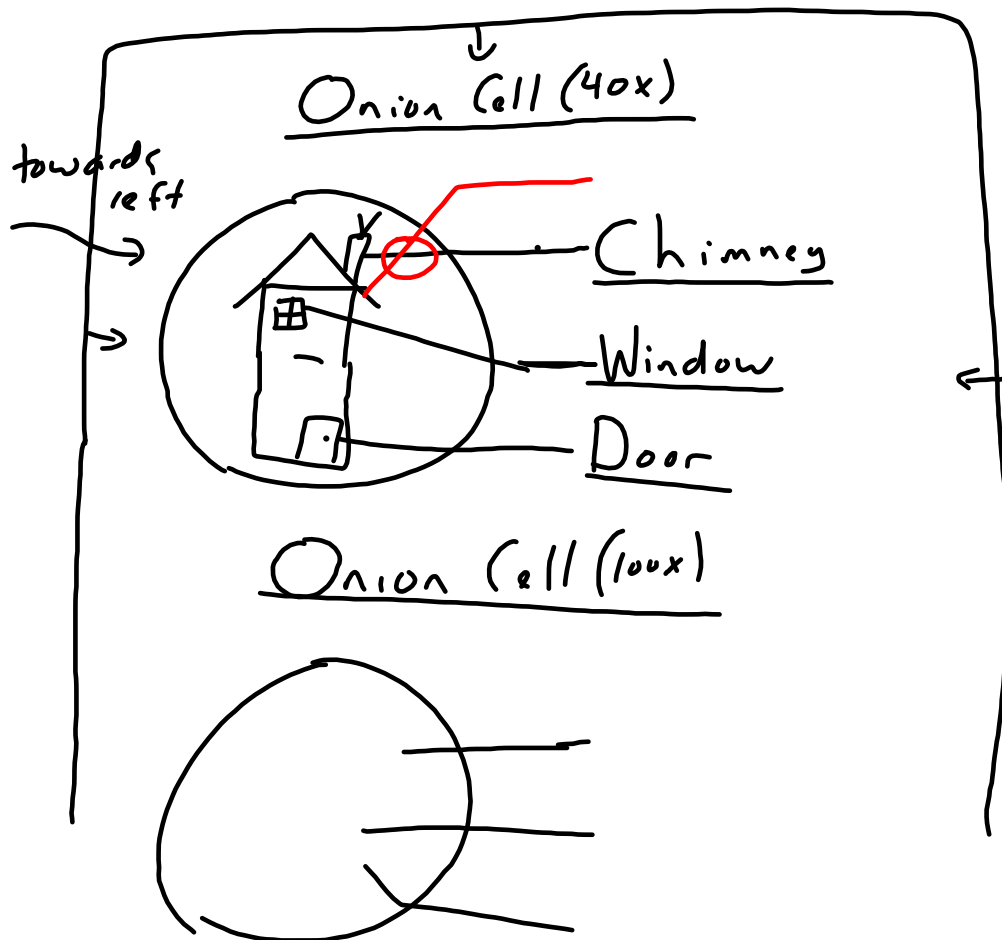 Onion Cell (40x)
towards
left
Chimney
Window
Door
Onion Cell (100x)